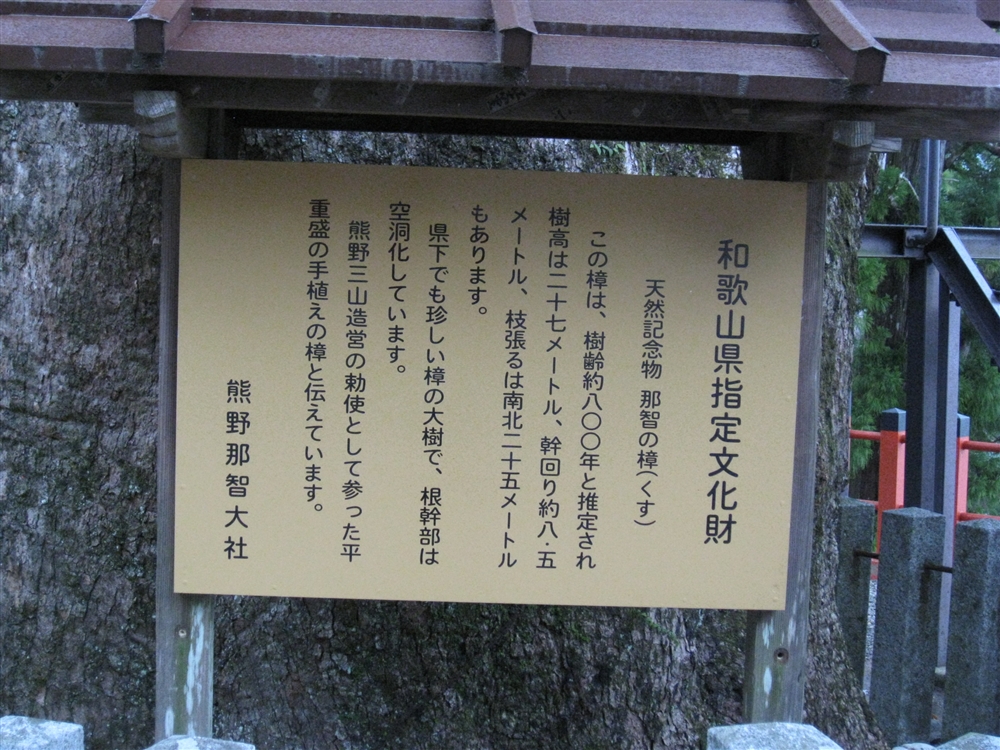 和歌山県指定文化財
天然記念物 那智の樟(くす)
この樟は、樹齢約八〇〇年と推定され
樹高は二十七メートル、幹回り約八・五
メートル、枝張るは南北二十五メートル
もあります。
県下でも珍しい樟の大樹で、根幹部は
空洞化しています。
熊野三山造営の勅使として参った平
重盛の手植えの樟と伝えています。
熊野那智大社